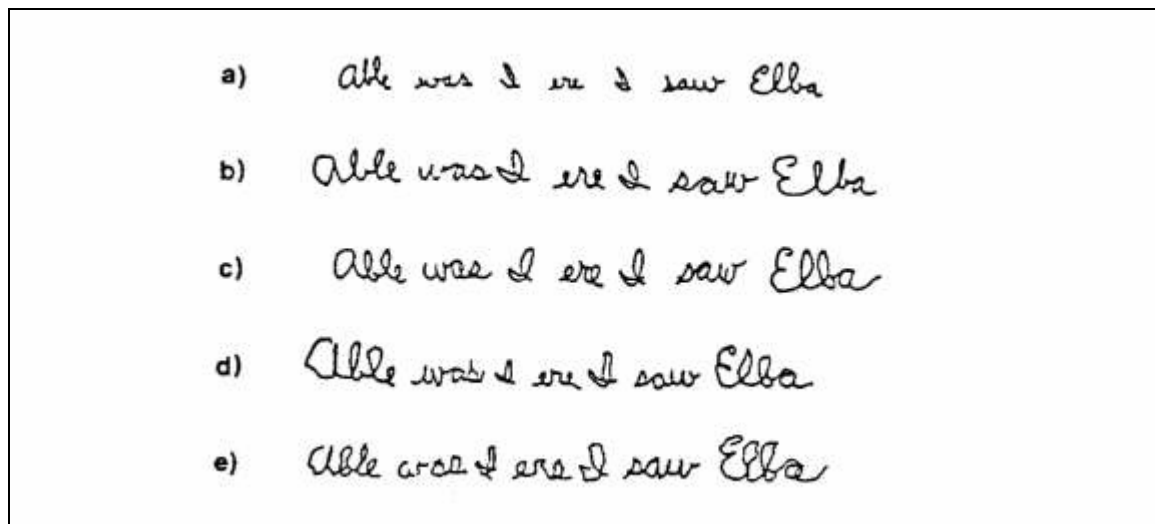 a) Able was I ere I saw Elba
b) Able was I ere I saw Elba
c) Able was I ere I saw Elba
d) Able was I ere I saw Elba
e) Able was I ere I saw Elba